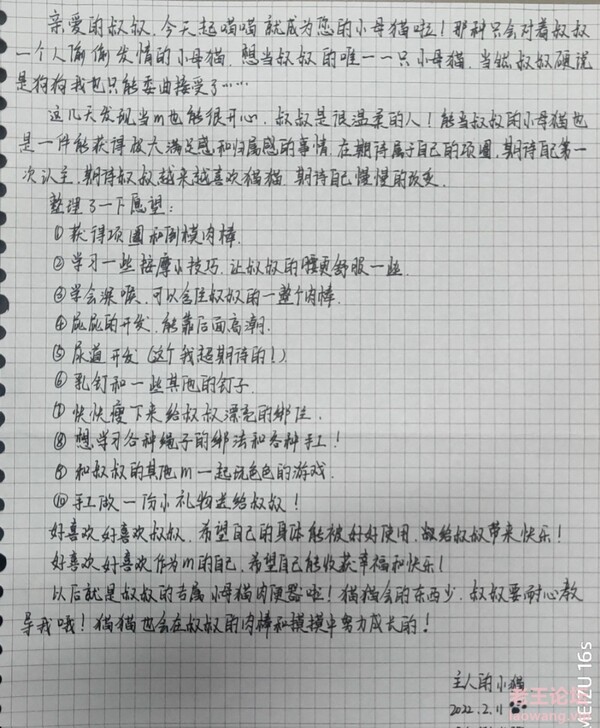 亲爱的叔叔,今天起喵喵就成为您的小母猫啦!那种只会对着叔叔
一个人偷偷发情的小母猫.想当叔叔的唯一一只小母猫.当然叔叔硬说
是狗狗我也只能委曲接受了……
这几天发现当m也能很开心.叔叔是很温柔的人!能当叔叔的小母猫也
是一件能获得极大满足感和归属感的事情.在期待属于自己的项圈,期待自己第一
次认主,期待叔叔越来越喜欢猫猫.期待自己慢慢的改变.
整理了一下愿望:
①获得项圈和倒模肉棒.
②学习一些按摩小技巧,让叔叔的腰更舒服一些.
③学会深喉,可以含住叔叔的一整个肉棒.
④屁屁的开发,能靠后面高潮.
⑤尿道开发(这个我超期待的!)
⑥乳钉和一些其他的钉子.
⑦快快瘦下来给叔叔漂亮的绑住.
⑧想学习各种绳子的绑法和各种手工!
⑨和叔叔的其他m一起玩色色的游戏.
⑩手工做一份小礼物送给叔叔!
好喜欢好喜欢叔叔.希望自己的身体能被好好使用.能给叔叔带来快乐!
好喜欢好喜欢作为m的自己,希望自己能收获幸福和快乐!
以后就是叔叔的专属小母猫肉便器啦!猫猫会的东西少.叔叔要耐心教
导我哦!猫猫也会在叔叔的肉棒和摸摸中努力成长的!
主人的小猫
2022.2.11
老王论坛
laowang.vip
MEIZU 16s